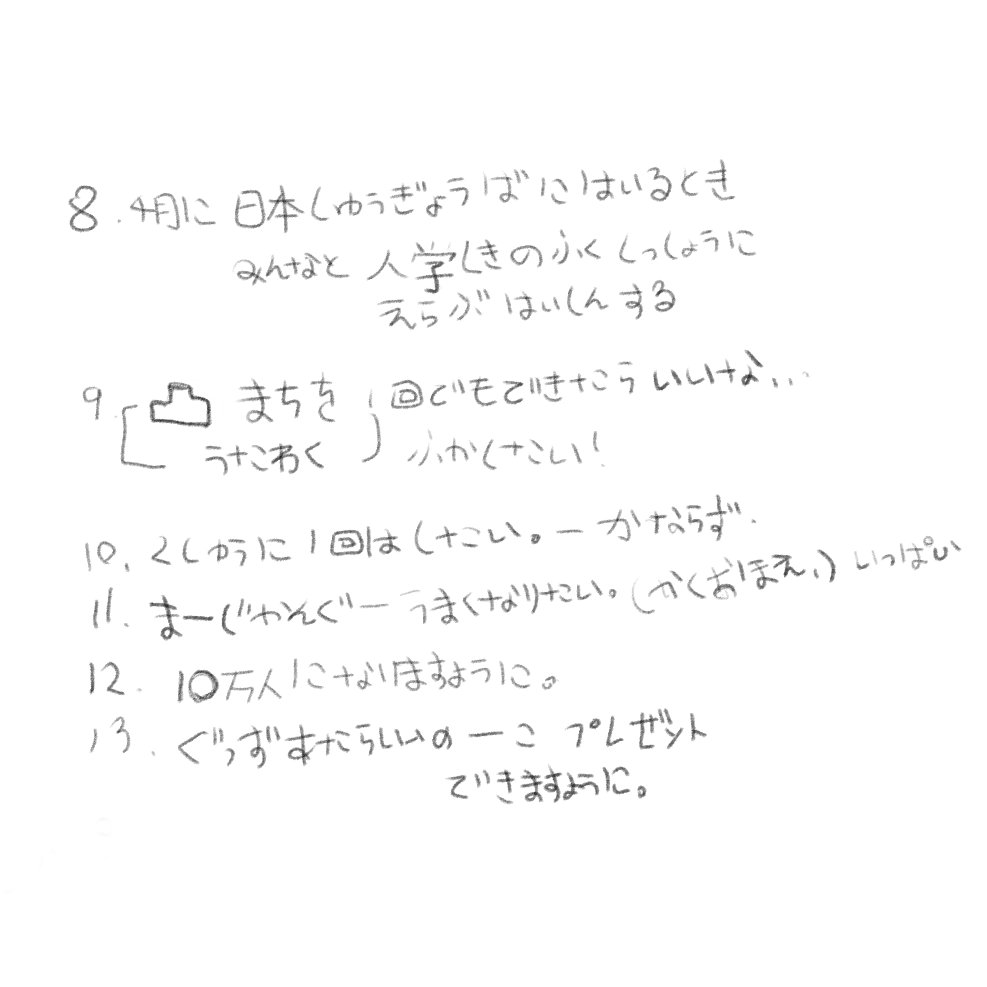 8. 4月に 日本しゅうぎょうばにはいるとき
みんなと 人学しきのふく しっしょうに
えらぶ はいしんする
9. 凸 まちを 1回でモできたらいいな...
うたわく ふかしたい!
10. 2しゅうに1回はしたい。ーかならず.
11. まーじゃんぐーうまくなりたい。(かくおぼえ,) いっぱい
12. 10万人になりますように。
13. ぐっずあたらしいの一こ プレゼント
できますように。